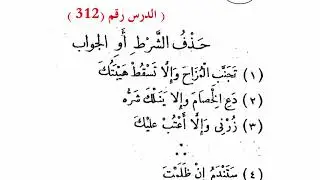 ( الدرس رقم (312 )
حَذْفُ الشَّرْطِ أَوِ الجواب
(١) تَجَنَّبِ الْمُزَاحَ وَإِلَّا تَسْقُطْ هَيْبَتُكَ
(٢) دَعِ الْخِصَامَ وَإِلا يَنَلْكَ شَرُّه
(٣) زُرْنِي وَإِلَّا أَعْتُبْ عليْكَ
(٤) سَتَنْدَمُ إِنْ ظَلَمْتَ